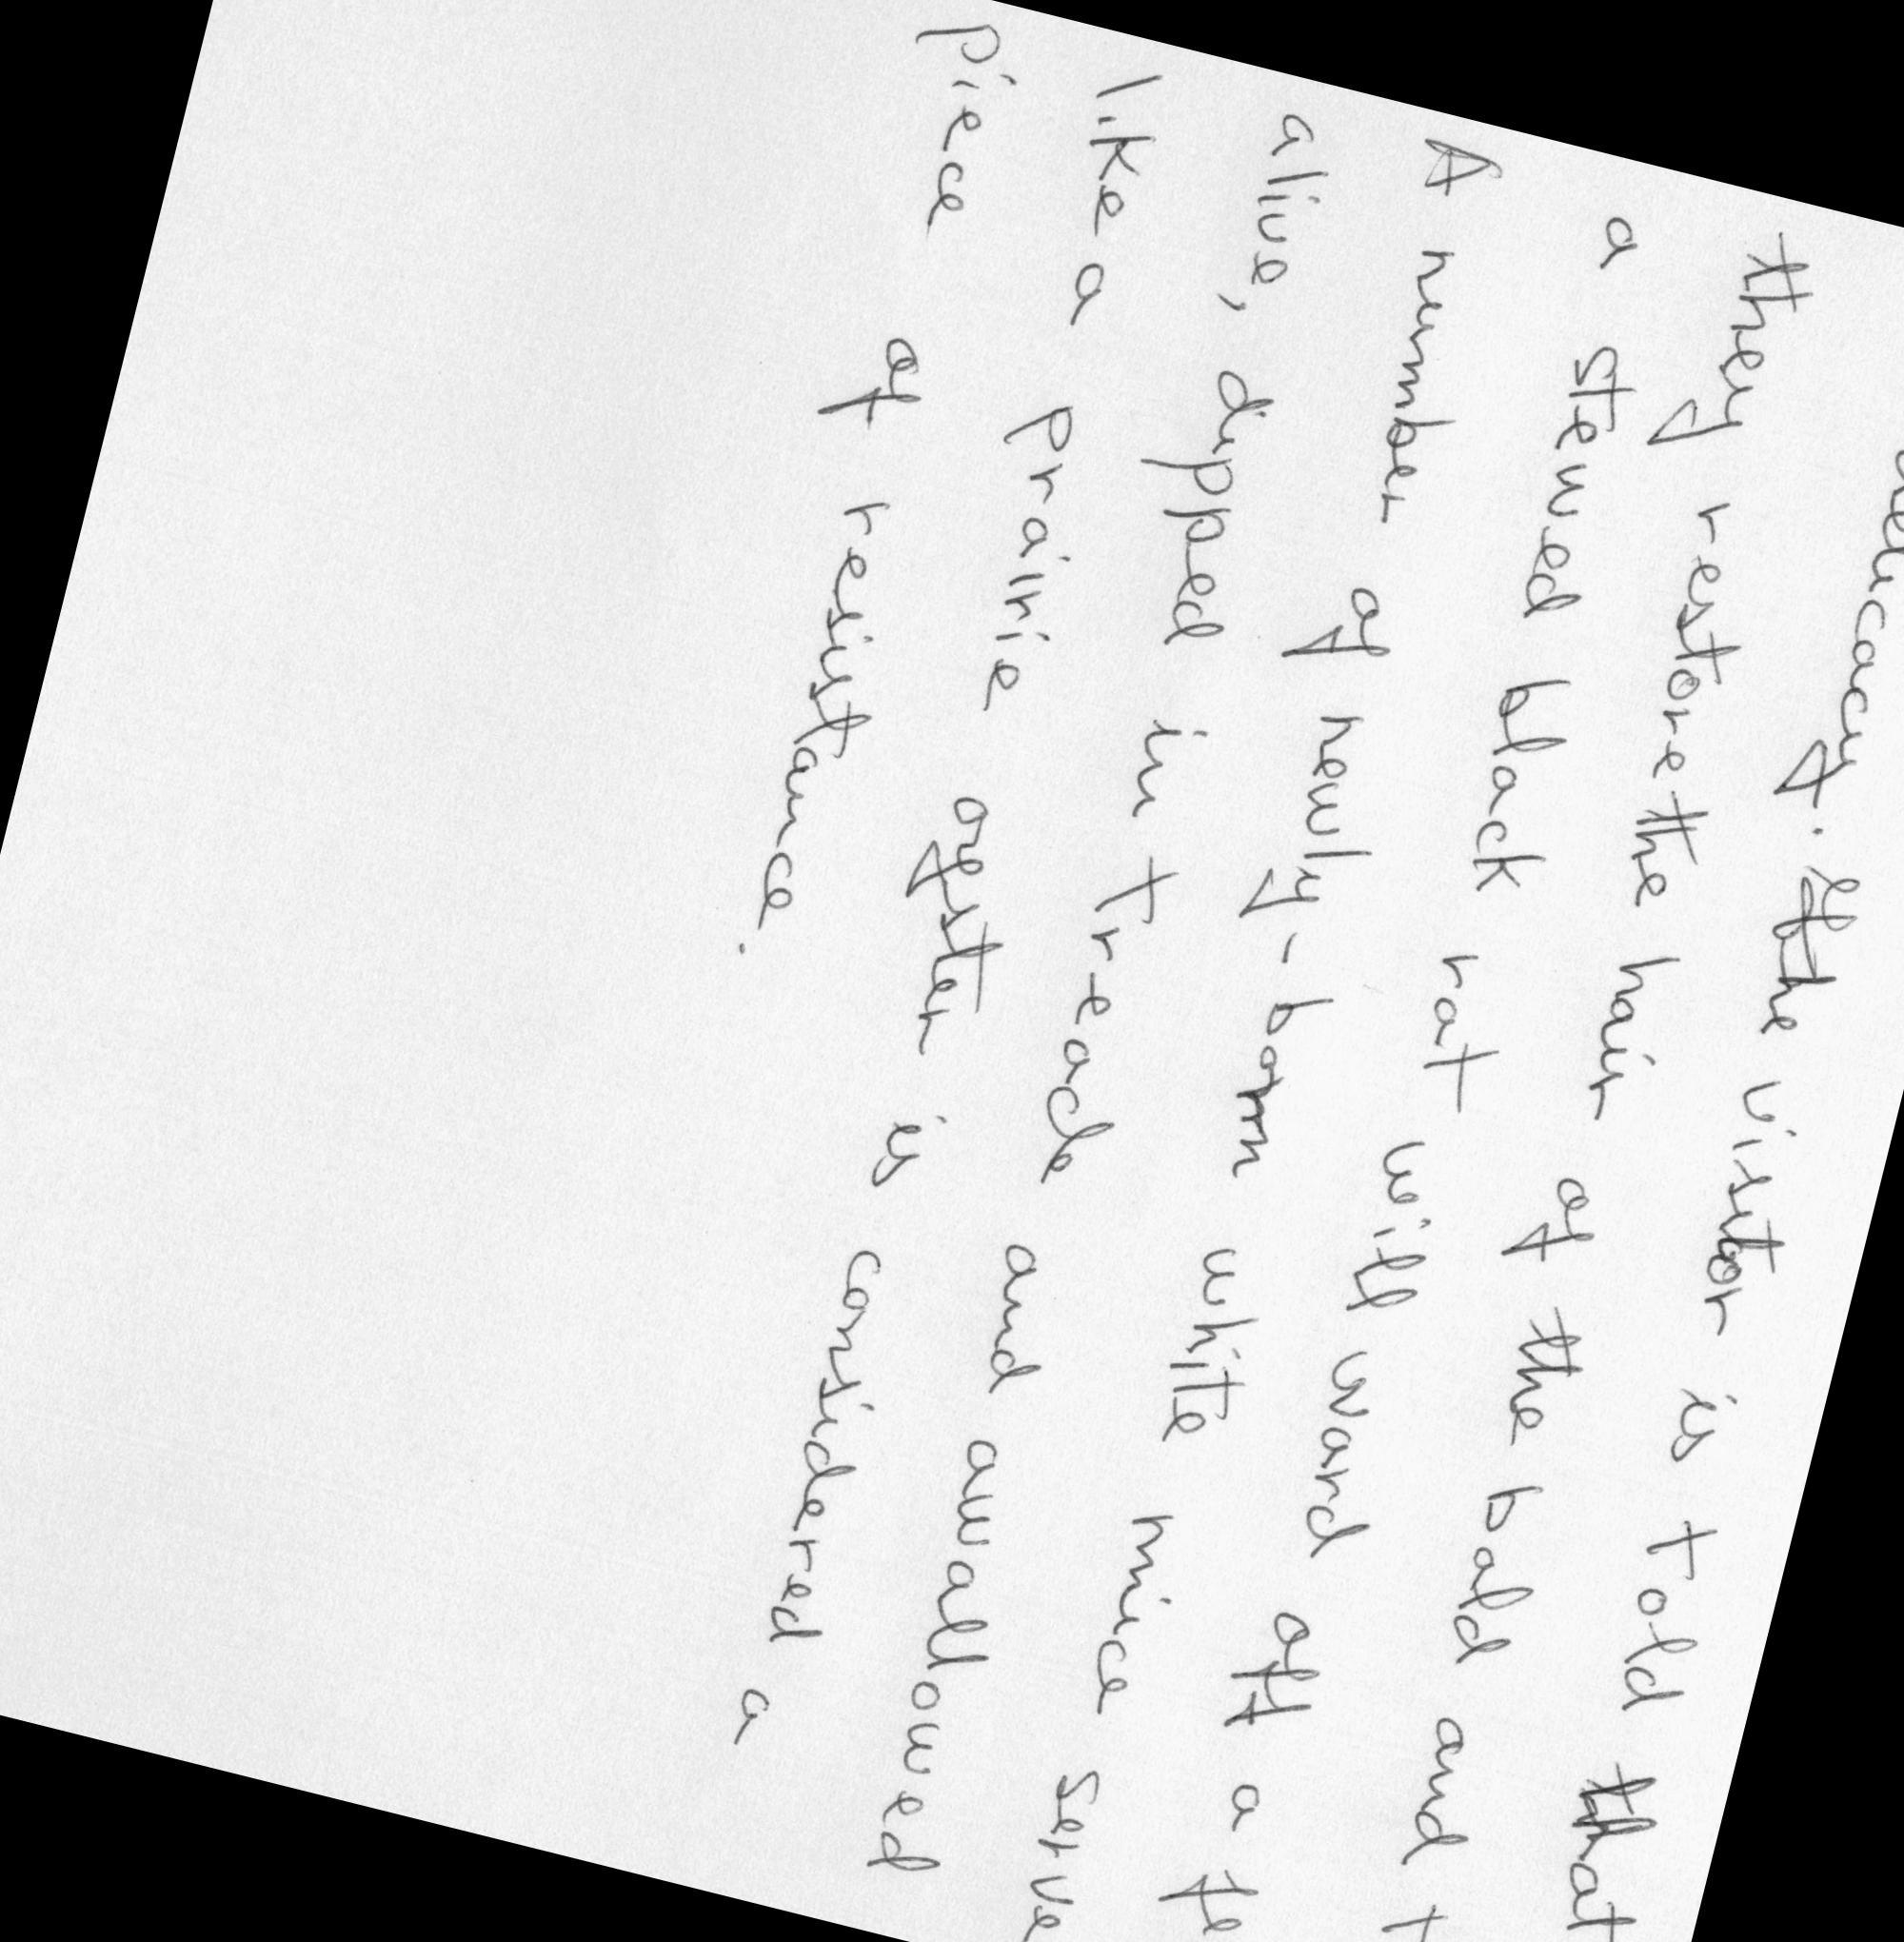 delicacy. If the visitor is told that
they restore the hair of the bald and t
a stewed black rat will ward off a fe
A number of newly-born white mice serve
alive, dipped in treacle and awallowed
like a prairie oyster is considered a
piece of resistance.